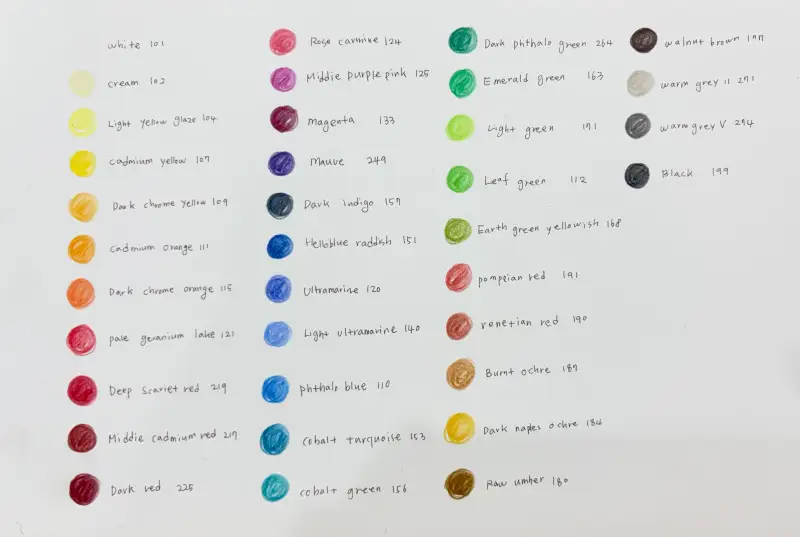 white 101
cream 102
Light yellow glaze 104
cadmium yellow 107
Dark chrome yellow 109
cadmium orange 111
Dark chrome orange 115
pale geranium lake 121
Deep scarlet red 219
Middle cadmium red 217
Dark red 225
Rose carmine 124
Middle purple pink 125
Magenta 133
Mauve 249
Dark Indigo 157
Helioblue raddish 151
Ultramarine 120
Light ultramarine 140
phthalo blue 110
cobalt turquoise 153
cobalt green 156
Dark phthalo green 264
Emerald green 163
Light green 171
Leaf green 112
Earth green yellowish 168
pompeian red 191
venetian red 190
Burnt ochre 187
Dark naples ochre 184
Raw umber 180
walnut brown 177
warm grey II 271
warm grey V 274
Black 199